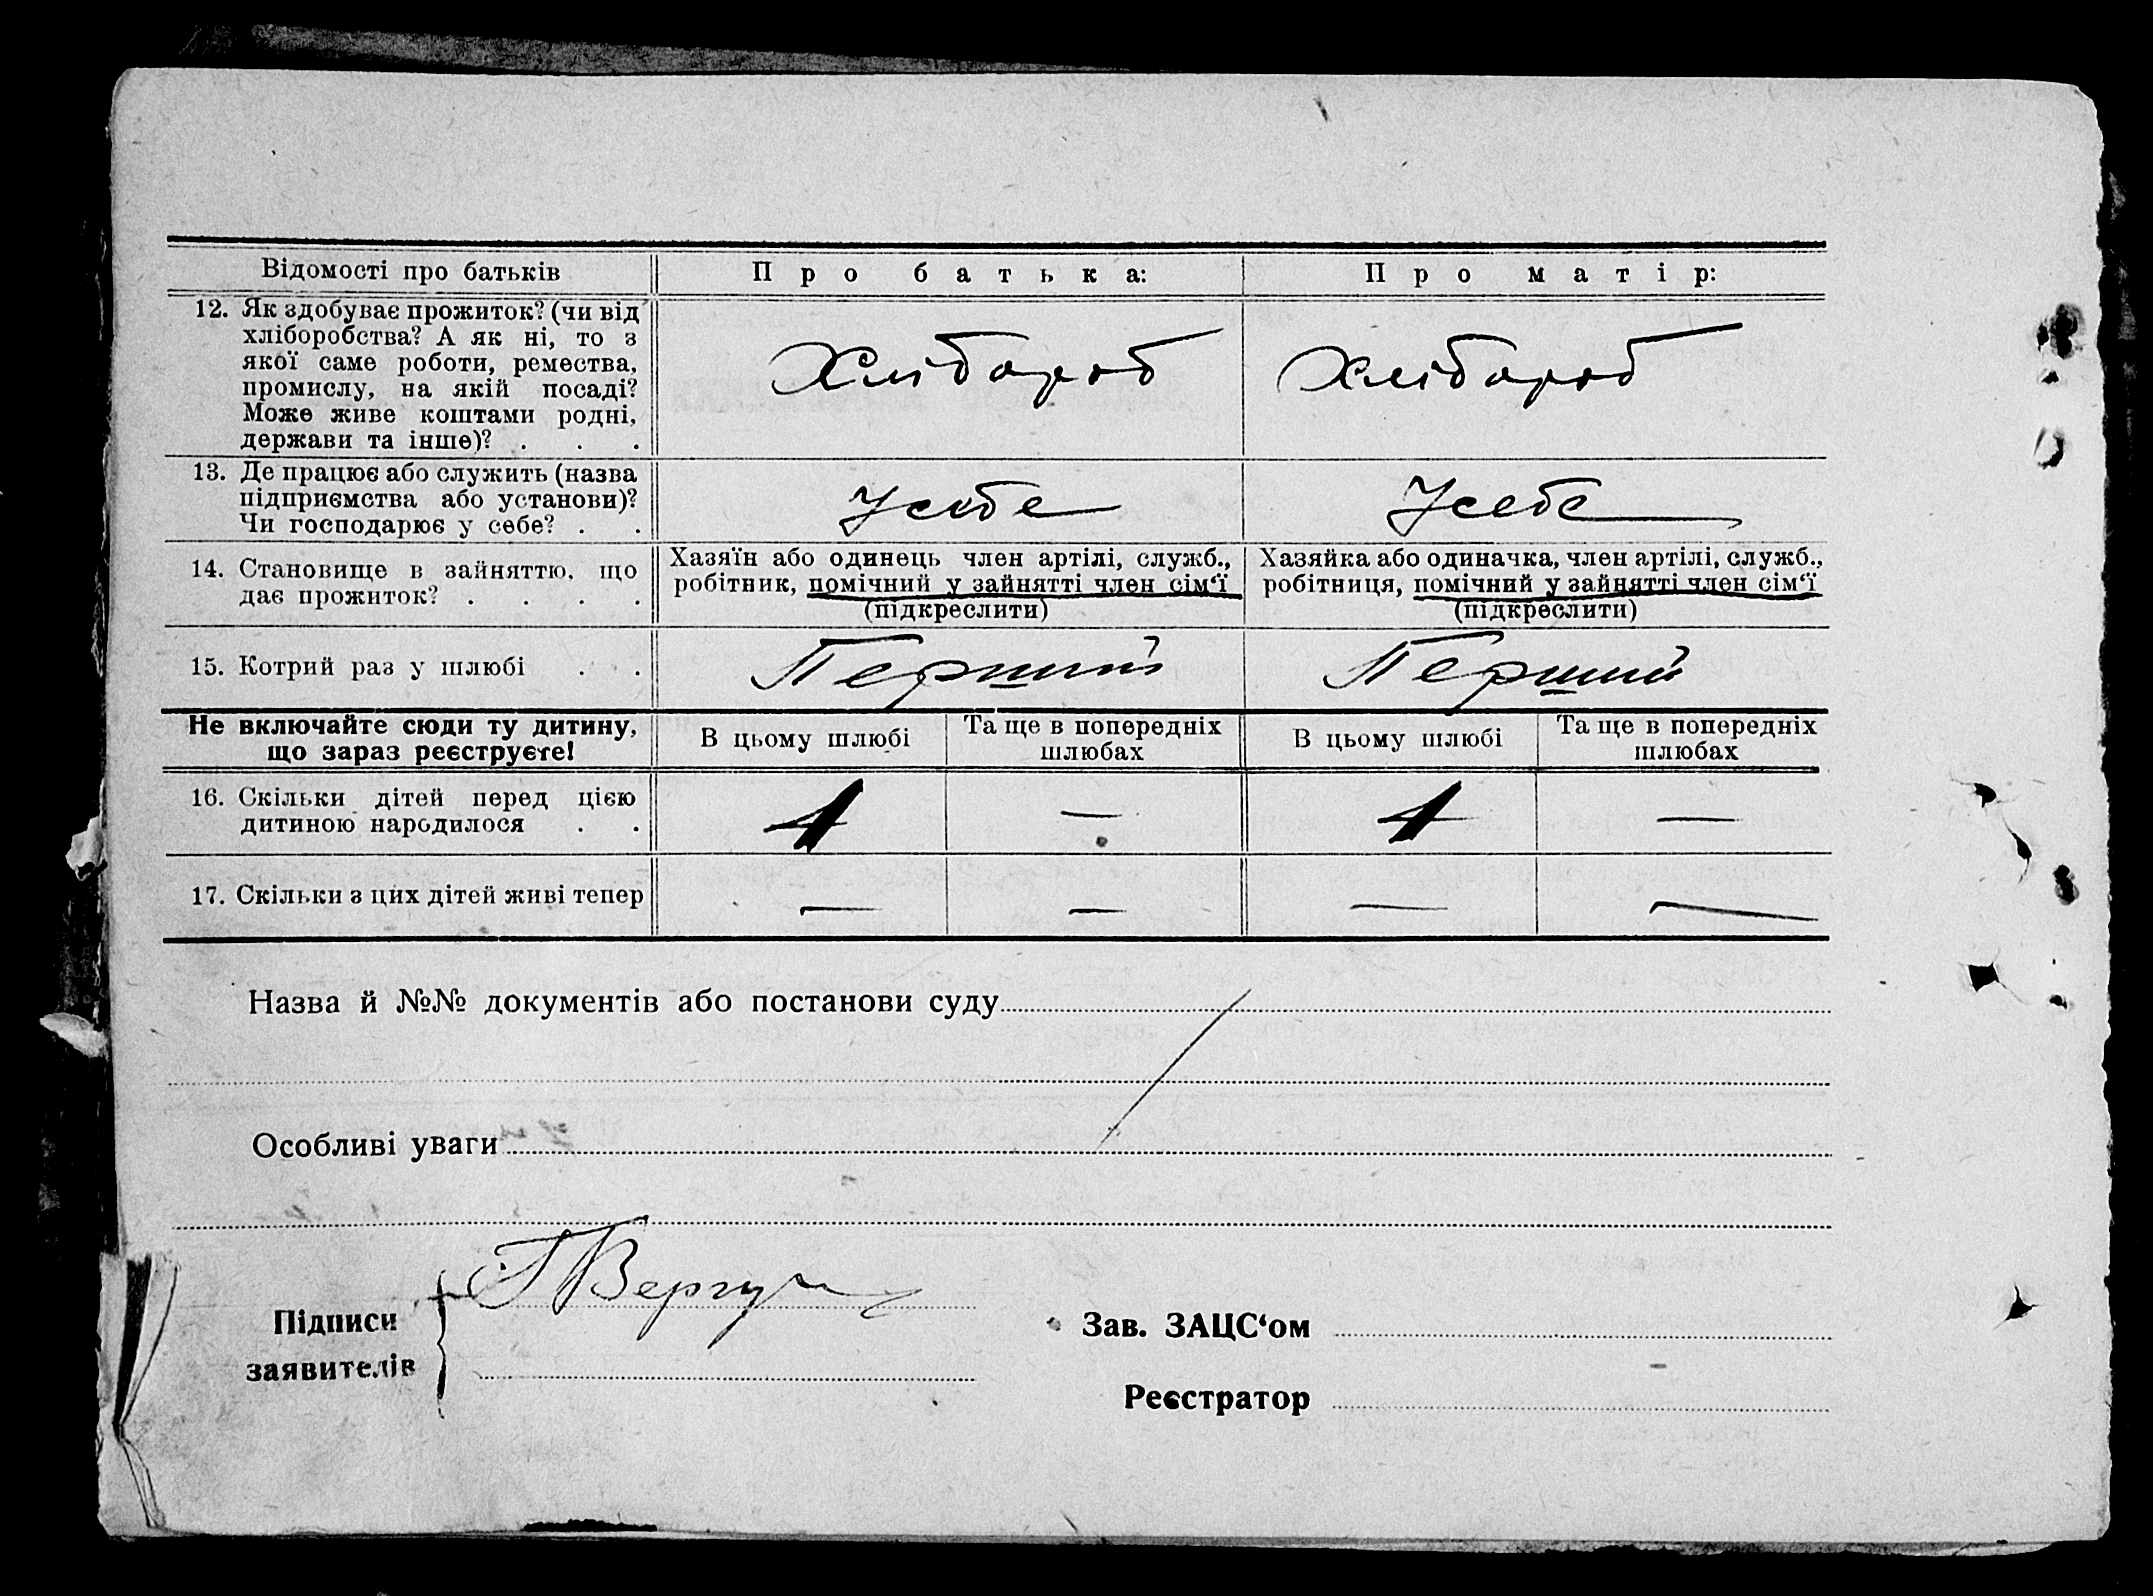 Відомості про батьків Про батька: Про матір:
12. Як здобуває прожиток? (чи від
хліборобства? А як ні, то з
якої саме роботи, ремества,
промислу, на якій посаді?
Може живе коштами родні,
держави та інше)? . . .
Хлібороб Хлібороб
13. Де працює або служить (назва
підприємства або установи)?
Чи господарює у себе? . .
Усебе Усебе
14. Становище в зайняттю, що
дає прожиток? . . . .
Хазяїн або одинець член артілі, служб.,
робітник, помічний у зайнятті член сім‘ї
(підкреслити)
Хазяйка або одиначка, член артілі, служб.,
робітниця, помічний у зайнятті член сім‘ї
(підкреслити)
15. Котрий раз у шлюбі . .
Перший Перший
Не включайте сюди ту дитину,
що зараз реєструєте!
В цьому шлюбі
Та ще в попередніх
шлюбах
В цьому шлюбі
Та ще в попередніх
шлюбах
16. Скільки дітей перед цією
дитиною народилося . .
1 — 1 —
17. Скільки з цих дітей живі тепер
— — — —
Назва й №№ документів або постанови суду
Особливі уваги
Підписи
заявителів
Зав. ЗАЦС‘ом
Реєстратор